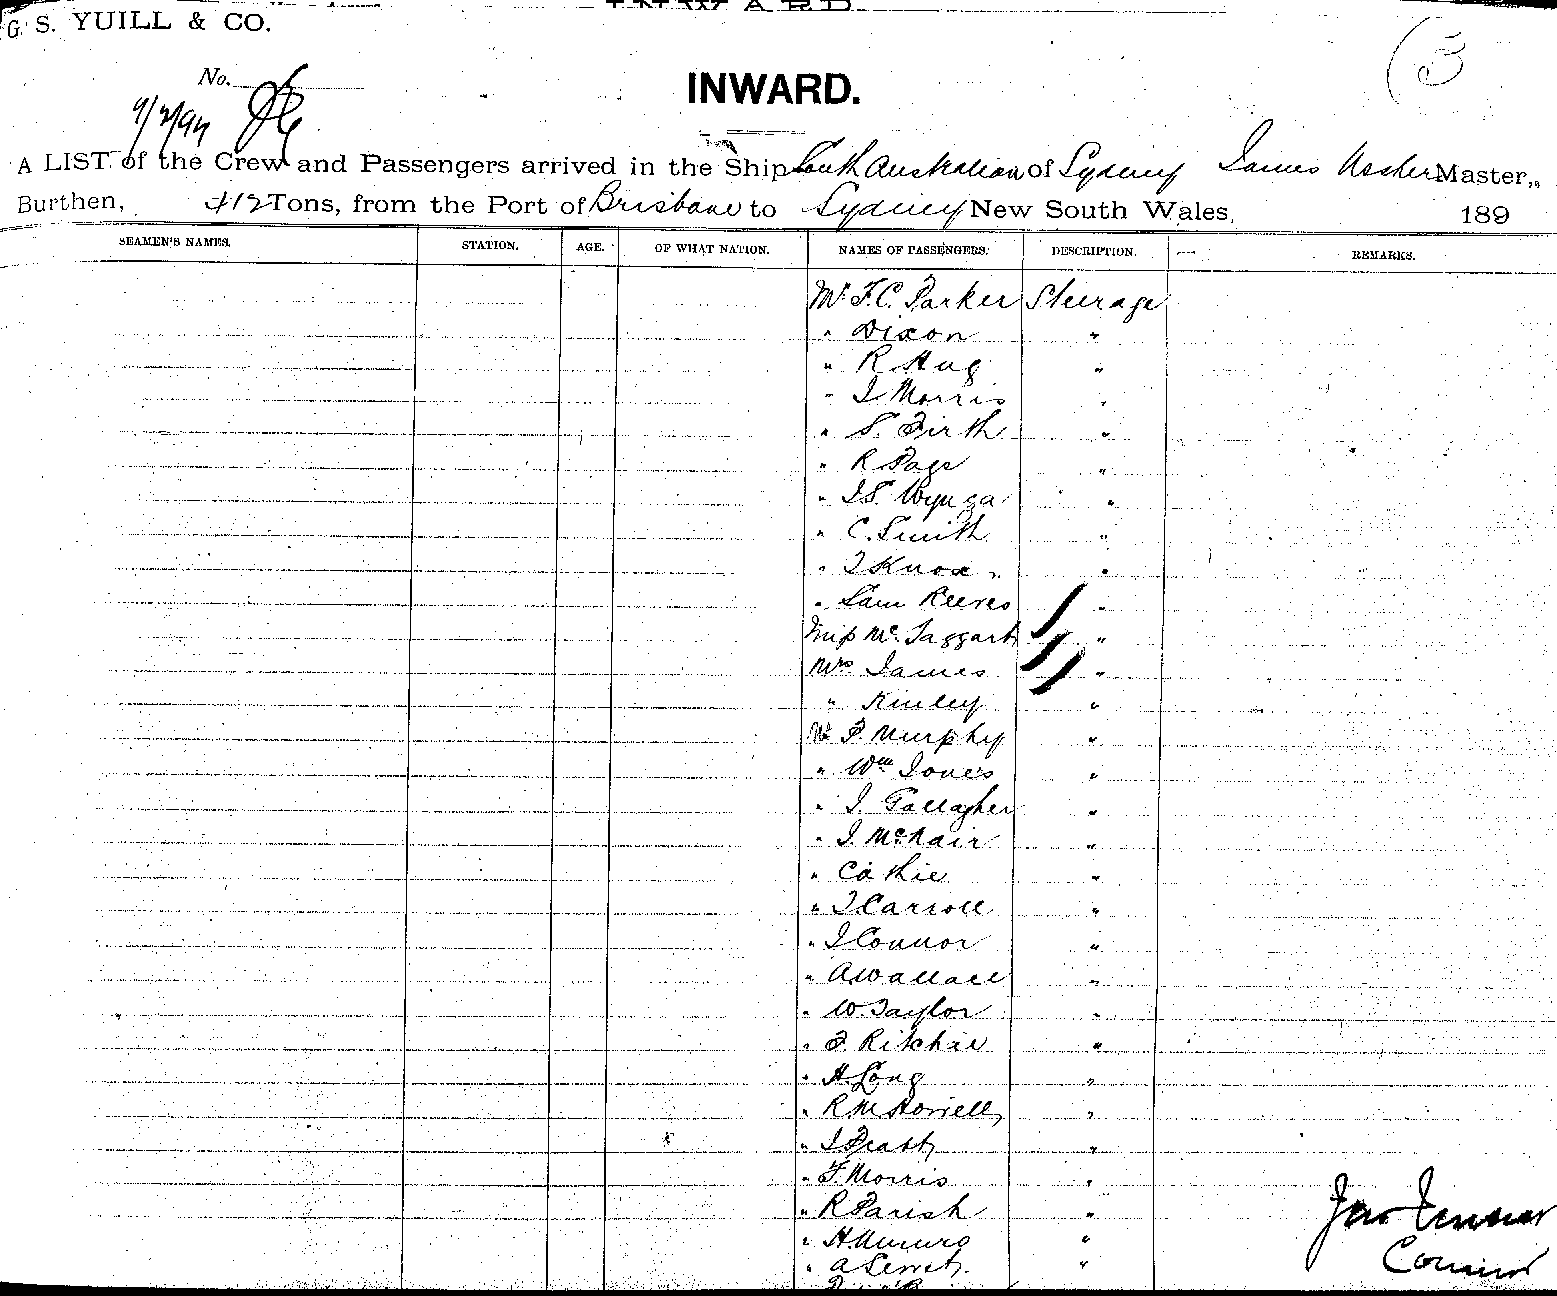 INWARD
G. S. YUILL & CO.
(3
No.
INWARD.
9/2/97
A LIST of the Crew and Passengers arrived in the Ship South Australian of Sydney James Master,
Burthen, 412 Tons, from the Port of Brisbane to Sydney New South Wales, 189
SEAMEN'S NAMES. STATION. AGE. OF WHAT NATION. NAMES OF PASSENGERS. DESCRIPTION. REMARKS.
Mr F.C. Parker Steerage
" Dixon "
" R Hug "
" J Morris "
" S. Firth "
" R Page "
" J S. "
" C. Smith "
" J Knox "
" Sam Reeves "
Miss Mc. Taggart "
Mrs James "
" Kinley "
Mr P. Murphy "
" Wm Jones "
" J. Gallagher "
" J. McNair "
" "
" J Carroll "
" J Connor "
" A Wallace "
" W. Taylor "
" J. Ritchie "
" H. Long "
" R. M "
" J "
" F. Morris "
" R Parish "
" H. "
" A "